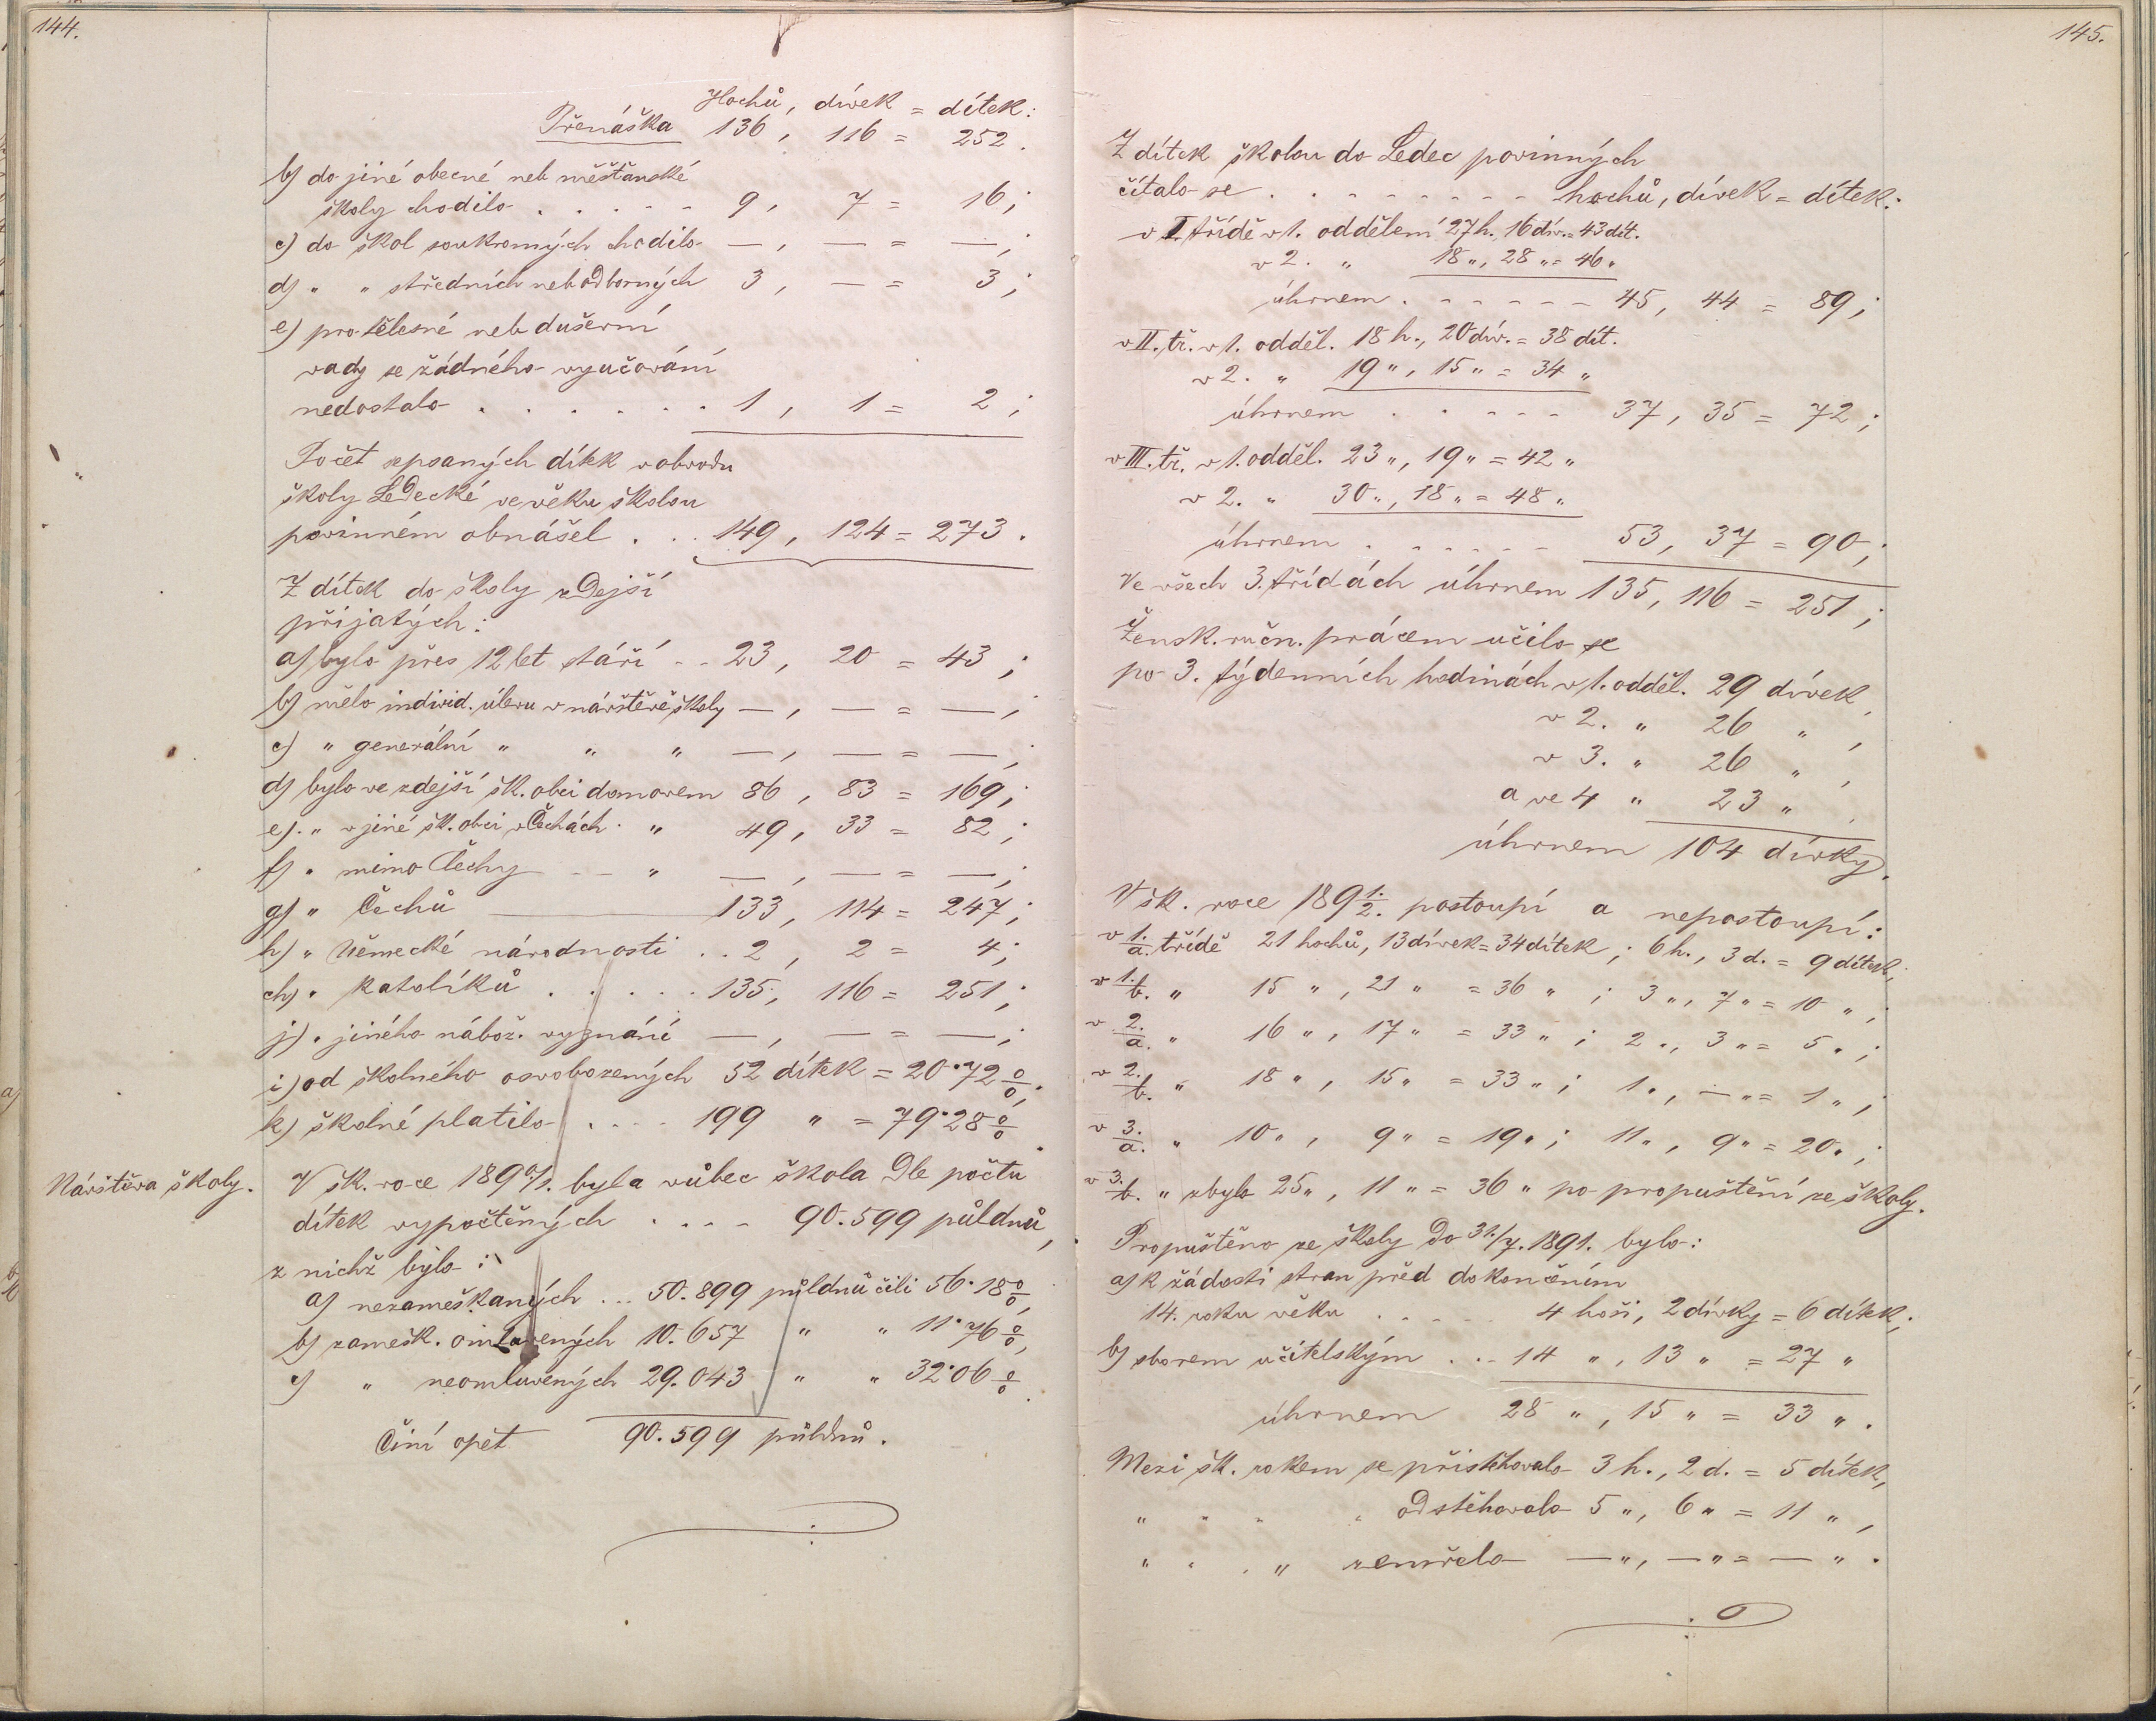 144.
Hochů, dívek = dítek:
Přenáška 136, 116 = 252.
b) do jiné obecné neb měšťanské
školy chodilo . . . . . 9, 7 = 16;
c) do škol soukromých chodilo —, — = —;
d) „ „ středních neb odborných 3, — = 3;
e) pro tělesné neb duševní
vady se žádného vyučování
nedostalo . . . . . . . 1, 1 = 2;
Počet sepsaných dítek v obvodu
školy Ledecké ve věku školou
povinném obnášel . . . 149, 124 = 273.
Z dítek do školy zdejší
přijatých:
a) bylo přes 12 let stáří . . 23, 20 = 43;
b) mělo individ. úlevu v návštěvě školy —, — = —;
c) „ generální „ „ „ —, — = —;
d) bylo ve zdejší šk. obci domovem 86, 83 = 169;
e) „ v jiné šk. obci v Čechách „ 49, 33 = 82;
f) „ mimo Čechy — — „ —, — = —;
g) „ Čechů 133, 114 = 247;
h) „ Německé národnosti . . 2, 2 = 4;
ch) „ katolíků . . . . . 135, 116 = 251;
j) „ jiného nábož. vyznání —, — = —;
i) od školného osvobozených 52 dítek = 20·72 %;
k) školné platilo . . . . 199 „ = 79·28 %.
Návštěva školy.
V šk. roce 1890/1. byla vůbec škola dle počtu
dítek vypočtěných . . . . 90.599 půldnů,
z nichž bylo:
a) nezameškaných ... 50.899 půldnů čili 56·18 %,
b) zamešk. omluvených 10.657 „ „ 11·76 %,
c) „ neomluvených 29.043 „ „ 32·06 %.
Činí opět 90.599 půldnů.
145.
Z dítek školou do Ledec povinných
čítalo se . . . . . . . . . hochů, dívek = dítek:
v I. třídě v 1. oddělení 27 h., 16 dív. = 43 dít.
v 2. „ 18 „, 28 „ = 46 „
úhrnem . . . . . . 45, 44 = 89;
v II. tř. v 1. odděl. 18 h., 20 dív. = 38 dít.
v 2. „ 19 „, 15 „ = 34 „
úhrnem . . . . . 37, 35 = 72;
v III. tř. v 1. odděl. 23 „, 19 „ = 42 „
v 2. „ 30 „, 18 „ = 48 „
úhrnem . . . . . . 53, 37 = 90;
Ve všech 3. třídách úhrnem 135, 116 = 251;
Žensk. ručn. pracem učilo se
po 3. týdenních hodinách v 1. odděl. 29 dívek,
v 2. „ 26 „ ,
v 3. „ 26 „ ,
a ve 4 „ 23 „ ,
úhrnem 104 dívky.
V šk. roce 1891/2. postoupí a nepostoupí:
v 1./a. třídě 21 hochů, 13 dívek = 34 dítek; 6 h., 3 d. = 9 dítek;
v 1./b. „ 15 „, 21 „ = 36 „; 3 „, 7 „ = 10 „;
v 2./a. „ 16 „, 17 „ = 33 „; 2 „, 3 „ = 5 „;
v 2./b. „ 18 „, 15 „ = 33 „; 1 „, — „ = 1 „;
v 3./a. „ 10 „, 9 „ = 19 „; 11 „, 9 „ = 20 „;
v 3./b. „ zbylo 25 „, 11 „ = 36 „ po propuštění ze školy.
Propuštěno ze školy do 31./7. 1891. bylo:
a) k žádosti stran před dokončením
14. roku věku . . . . . 4 hoši, 2 dívky = 6 dítek;
b) sborem učitelským . . . 14 „, 13 „ = 27 „
úhrnem 28 „, 15 „ = 33 „.
Mezi šk. rokem se přistěhovalo 3 h., 2 d. = 5 dítek,
„ „ „ „ odstěhovalo 5 „, 6 „ = 11 „,
„ „ „ „ zemřelo — „, — „ = — „.